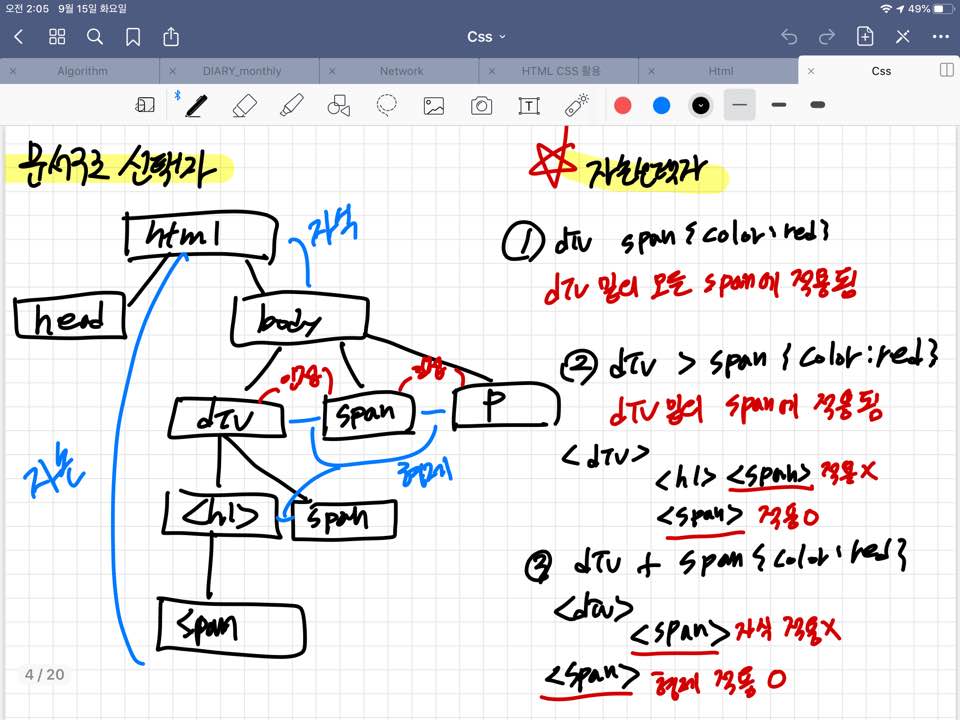 오전 2:05 9월 15일 화요일
49%
Css
Algorithm
DIARY_monthly
Network
HTML CSS 활용
Html
Css
T
문서구조 선택자
html
자식
head
body
인접
인접
div
span
P
자손
형제
<h1>
span
<span
자손선택자
① div span {color:red}
div 밑의 모든 span에 적용됨
② div > span {color:red}
div 밑의 span에 적용됨
<div>
<h1> <span> 적용X
<span> 적용O
③ div + span {color:red}
<div>
<span> 자식 적용X
<span> 형제 적용O
4 / 20